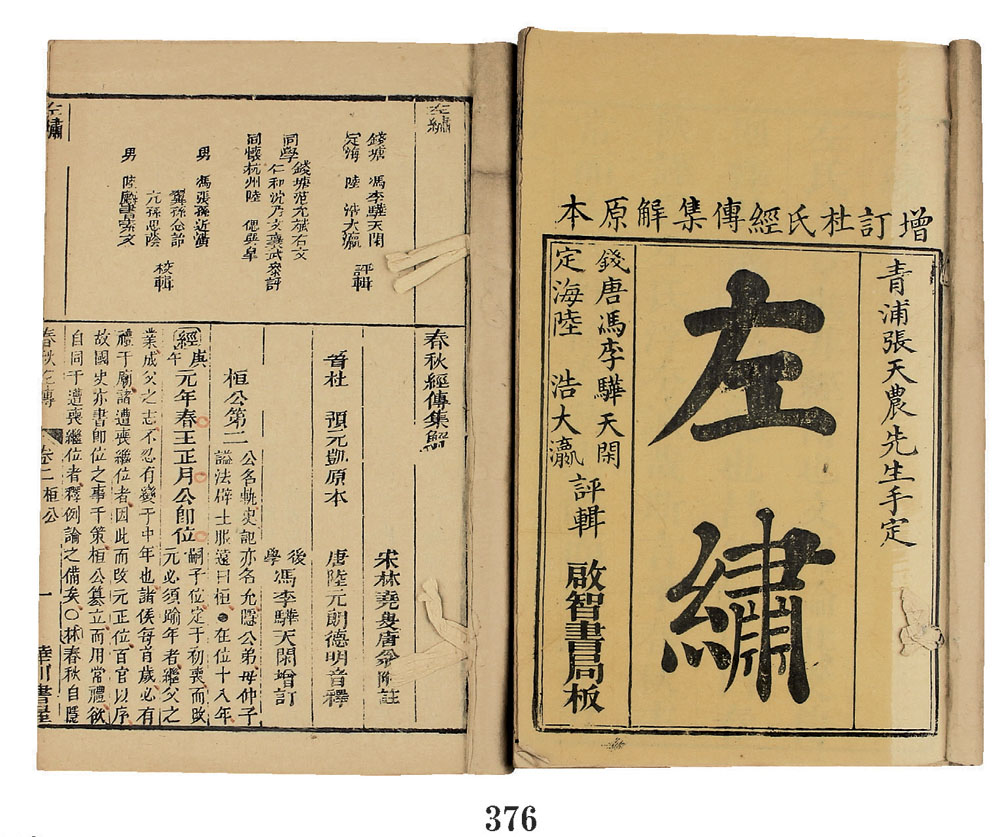 增訂杜氏經傳集解原本
青浦張天農先生手定
左繡
錢唐馮李驊天閑
定海陸浩大瀛
評輯
啟智書局板
左繡
錢塘馮李驊天閑
定海陸浩大瀛
評輯
同學
錢塘范允斌右文
仁和沈乃文襄武
參評
同懷杭州陸偲
男馮張孫近潢
翼孫思節
元孫思陰
校輯
男陸
左繡
春秋經傳集解
宋林堯叟唐翁附註
晉杜預元凱原本
唐陸元朗德明音釋
後學馮李驊天閑增訂
桓公第二
公名軌史記亦名允隱公弟母仲子
諡法辟土服遠曰桓在位十八年
經庚午元年春王正月公卽位
嗣子位定于初喪而改
元必須踰年者繼父之
業成父之志不忍有變于中年也諸侯每首歲必有
禮于廟諸遭喪繼位者因此而改元正位百官以序
故國史亦書卽位之事于策桓公篡立而用常禮欲
自同于遭喪繼位者釋例論之備矣○林春秋自隱
春秋左傳
卷二桓公
一
華川書屋
376